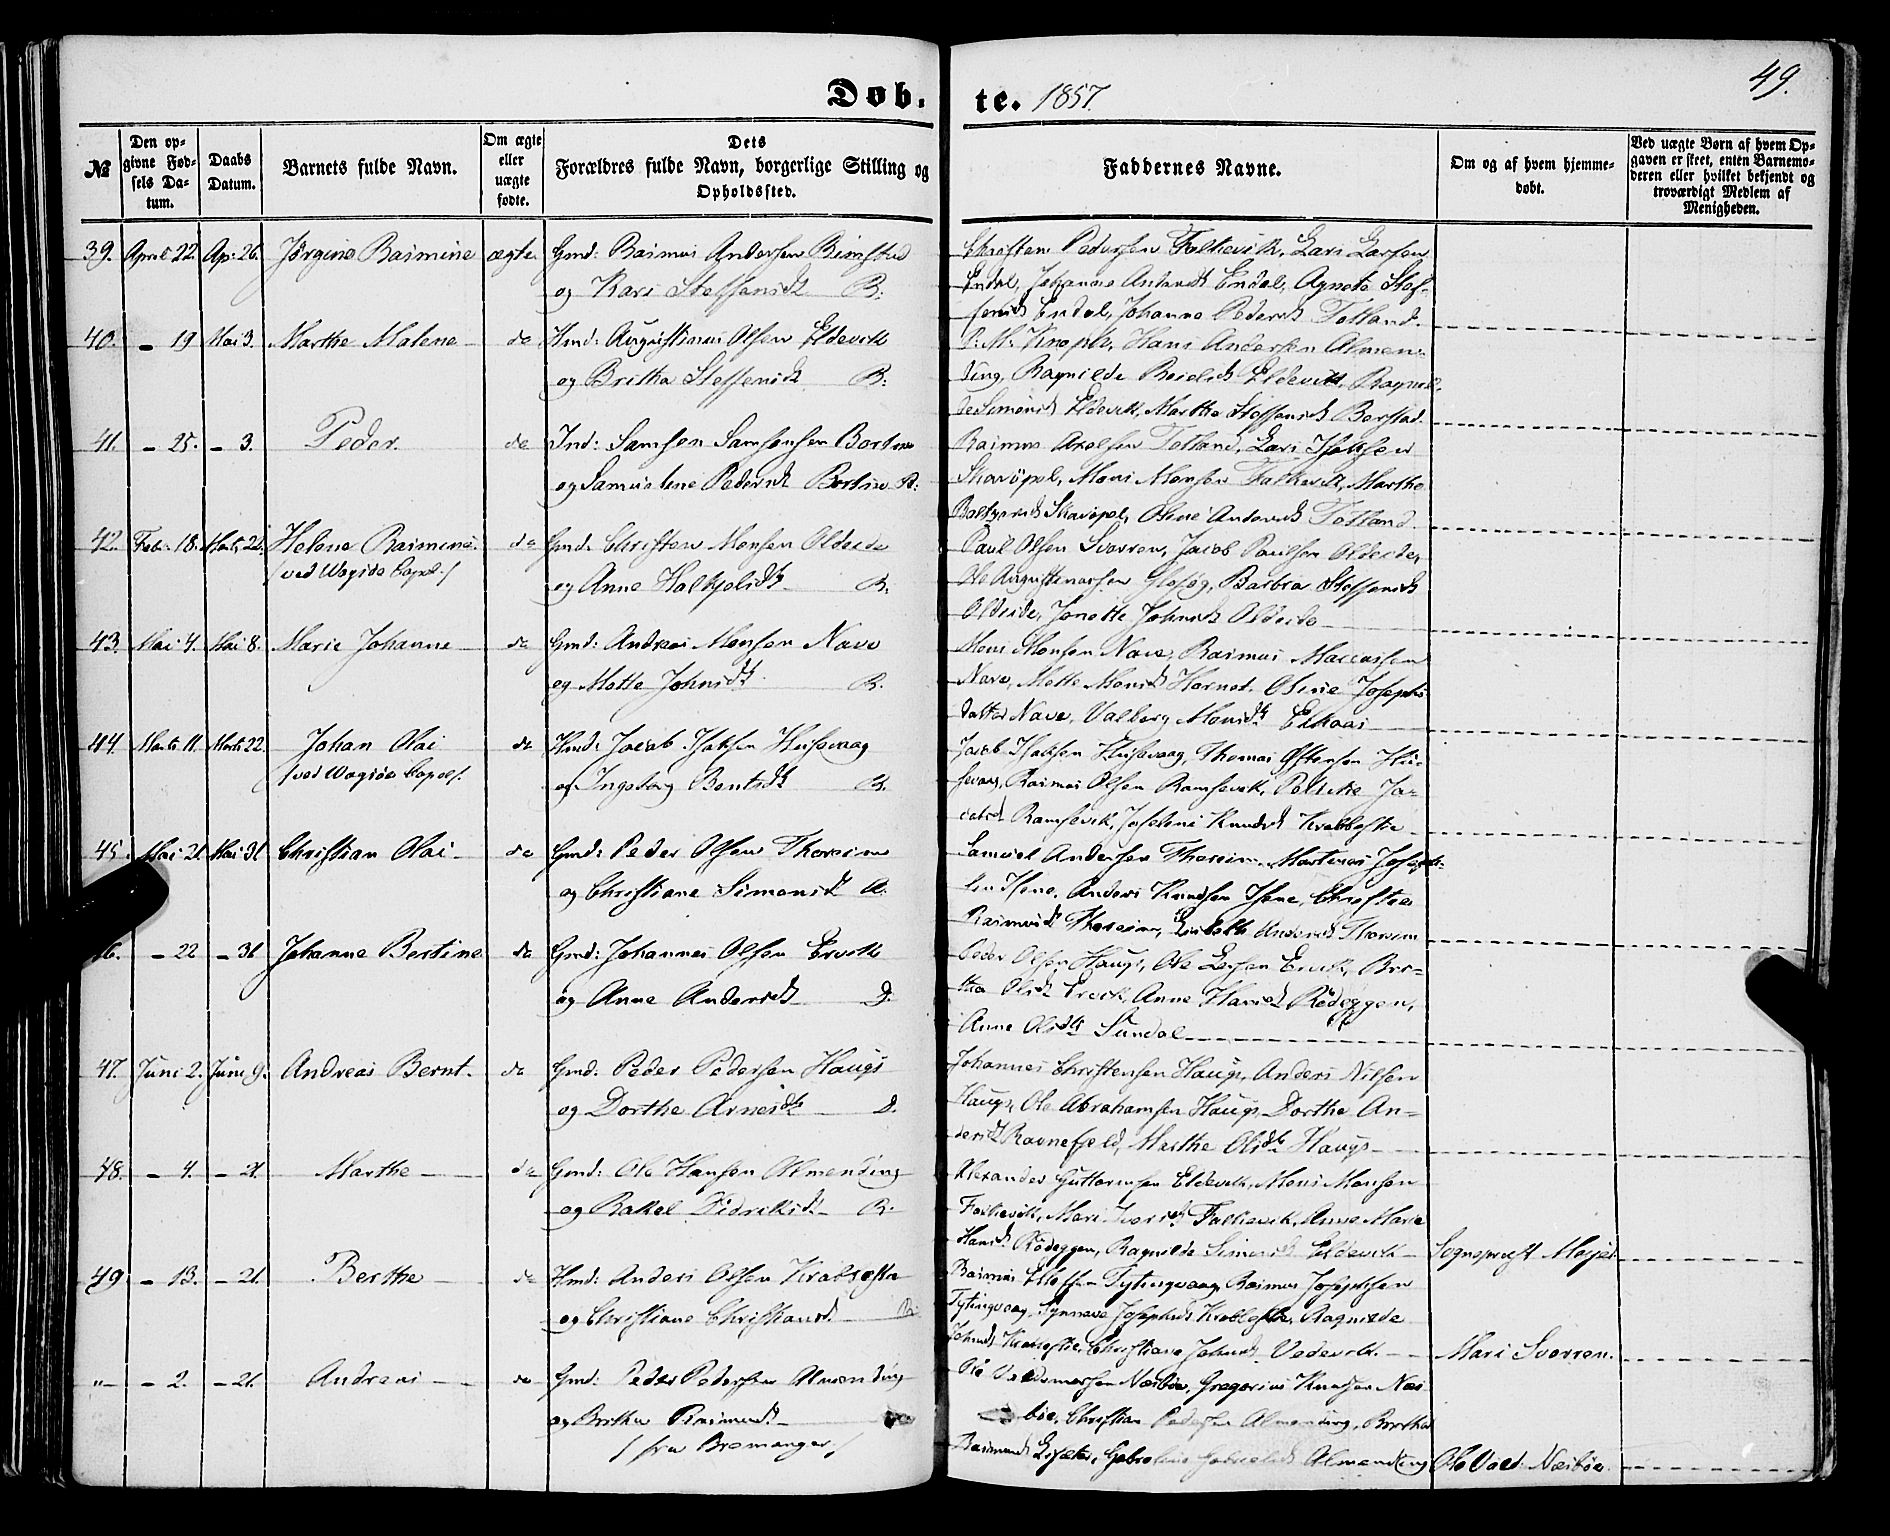 Døb.
te. 1857.
49.
№
Den op-
givne Fød-
sels Da-
tum.
Daabs
Datum.
Barnets fulde Navn.
Om ægte
eller
uægte
fødte.
Dets
Forældres fulde Navn, borgerlige Stilling og
Opholdssted.
Faddernes Navne.
Om og af hvem hjemme-
døbt.
Ved uægte Børn af hvem Op-
gaven er skeet, enten Barnemo-
deren eller hvilket bekjendt og
troværdigt Medlem af
Menigheden.
39. April 22. Ap: 26. Jørgine Rasmine ægte Gmd: Rasmus Andersen Rimstad
og Kari Steffensdt B:
Christen Pedersen Falkevik, Lars Larsen
Endal, Johanne Andersdt Endal, Agnete Stef-
fensdt Endal, Johanne Pedersdt Totland.
40. - 19 Mai 3. Marthe Malene do Hmd: Augustinus Olsen Eldevik
og Britha Steffensdt B:
P. M. Knoph, Hans Andersen Almen-
ding, Ragnilde Eldevik, Ragnil-
de Simonsdt Eldevik, Marthe Steffensdt Borstad.
41. - 25. - 3. Peder. do Ind: Samson Samsonsen Bortne
og Samueline Pedersdt Bortne B:
Rasmus Axelsen Totland, Lars Isaksen
Skavøpol, Mons Monsen Falkevik, Marthe
Skavøpol, Oline Andersdt Totland.
42. Feb: 18. Marts 22. Helene Rasmine. do Gmd. Christen Monsen Oldeide
/ved Vaagsø Capel/
og Anne B.
Paul Olsen Svorren, Jacob Paulsen Oldeide,
Ole Augustinussen Barbra Steffensdt
Oldeide, Jenette Johnsdt Oldeide
43. Mai 4. Mai 8. Marie Johanne do Gmd: Andreas Monsen Nave
og Mette Johnsdt B.
Mons Monsen Nave, Rasmus
Nave, Mette Monsdt Hornet. Oline Josephs
datter Nave, Valborg Monsdt
44. Marts 11. Marts 22 Johan Olai do Hmd: Jacob Isaksen Husevaag
/ved Vaagsøe Capel/.
og Ingeborg Bentsdt B.
Jacob Isaksen Husevaag, Thomas Hu-
sevaag, Rasmus Olsen Ramsevik, Ja-
cobsdt Ramsevik, Knudsdt
45. Mai 21 Mai 31 Christian Olai do Gmd: Peder Olsen
og Christiane Simonsdt D.
Samuel Andersen Martinus Joseph-
sen Isene, Anders Knudsen Isene,
Rasmusdt Andersdt
6. - 22 - 31 Johanne Bertine do Gmd: Johannes Olsen Ervik
og Anne Andersdt D.
Peder Olsen Haugs, Ole Ervik, Bri-
tha Olsdt Ervik, Anne Hansdt Rødeggen,
Anne Olsdt Sundal
47. Juni 2. Juni 9. Andreas Bernt. do Gmd: Peder Pedersen Haugs
og Dorthe Arnesdt D.
Johannes Christensen Haugs, Anders Nilsen
Haugs, Ole Abrahamsen Haugs, Dorthe An-
dersdt Ravnefjeld, Marthe Olsdt Haugs
48. - 4. - 21. Marthe do Gmd: Ole Hansen Almending
og Rakel Didriksdt B.
Alexander Guttormsen Eldevik, Mons Monsen
Falkevik, Mari Iversdt Falkevik, Anne Marie
Hansdt Rødeggen, Ragnilde Simonsdt Eldevik Sognepræst
49. - 13. - 21. Berthe do Hmd: Anders Olsen
og Christiane Christiansdt B.
Rasmus Tytingvaag, Rasmus Josephsen
Tytingvaag, Synnøve Josephsdt Ragnilde
Johnsdt Christiane Johnsdt Vedevik. Mari Svorren.
"- - 2. - 21. Andreas do Gmd: Peder Pedersen Almending
og Britha Rasmusdt
/ fra Bremanger /
Ole Næsbøe, Gregorius Knudsen Næs-
bøe, Christian Pedersen Almending, Berthe
Rasmusdt Gabrielsdt Almending Ole Næsbøe.